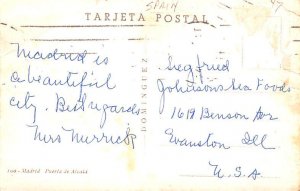 SPAIN
TARJETA POSTAL
Madrid is
a beautiful
city. Best regards
Mrs Merrick
DOMINGUEZ
Siegfried
Johnsons Sea Foods
1619 Benson Av
Evanston Ill
U.S.A
Madrid. Puerta de Alcalá